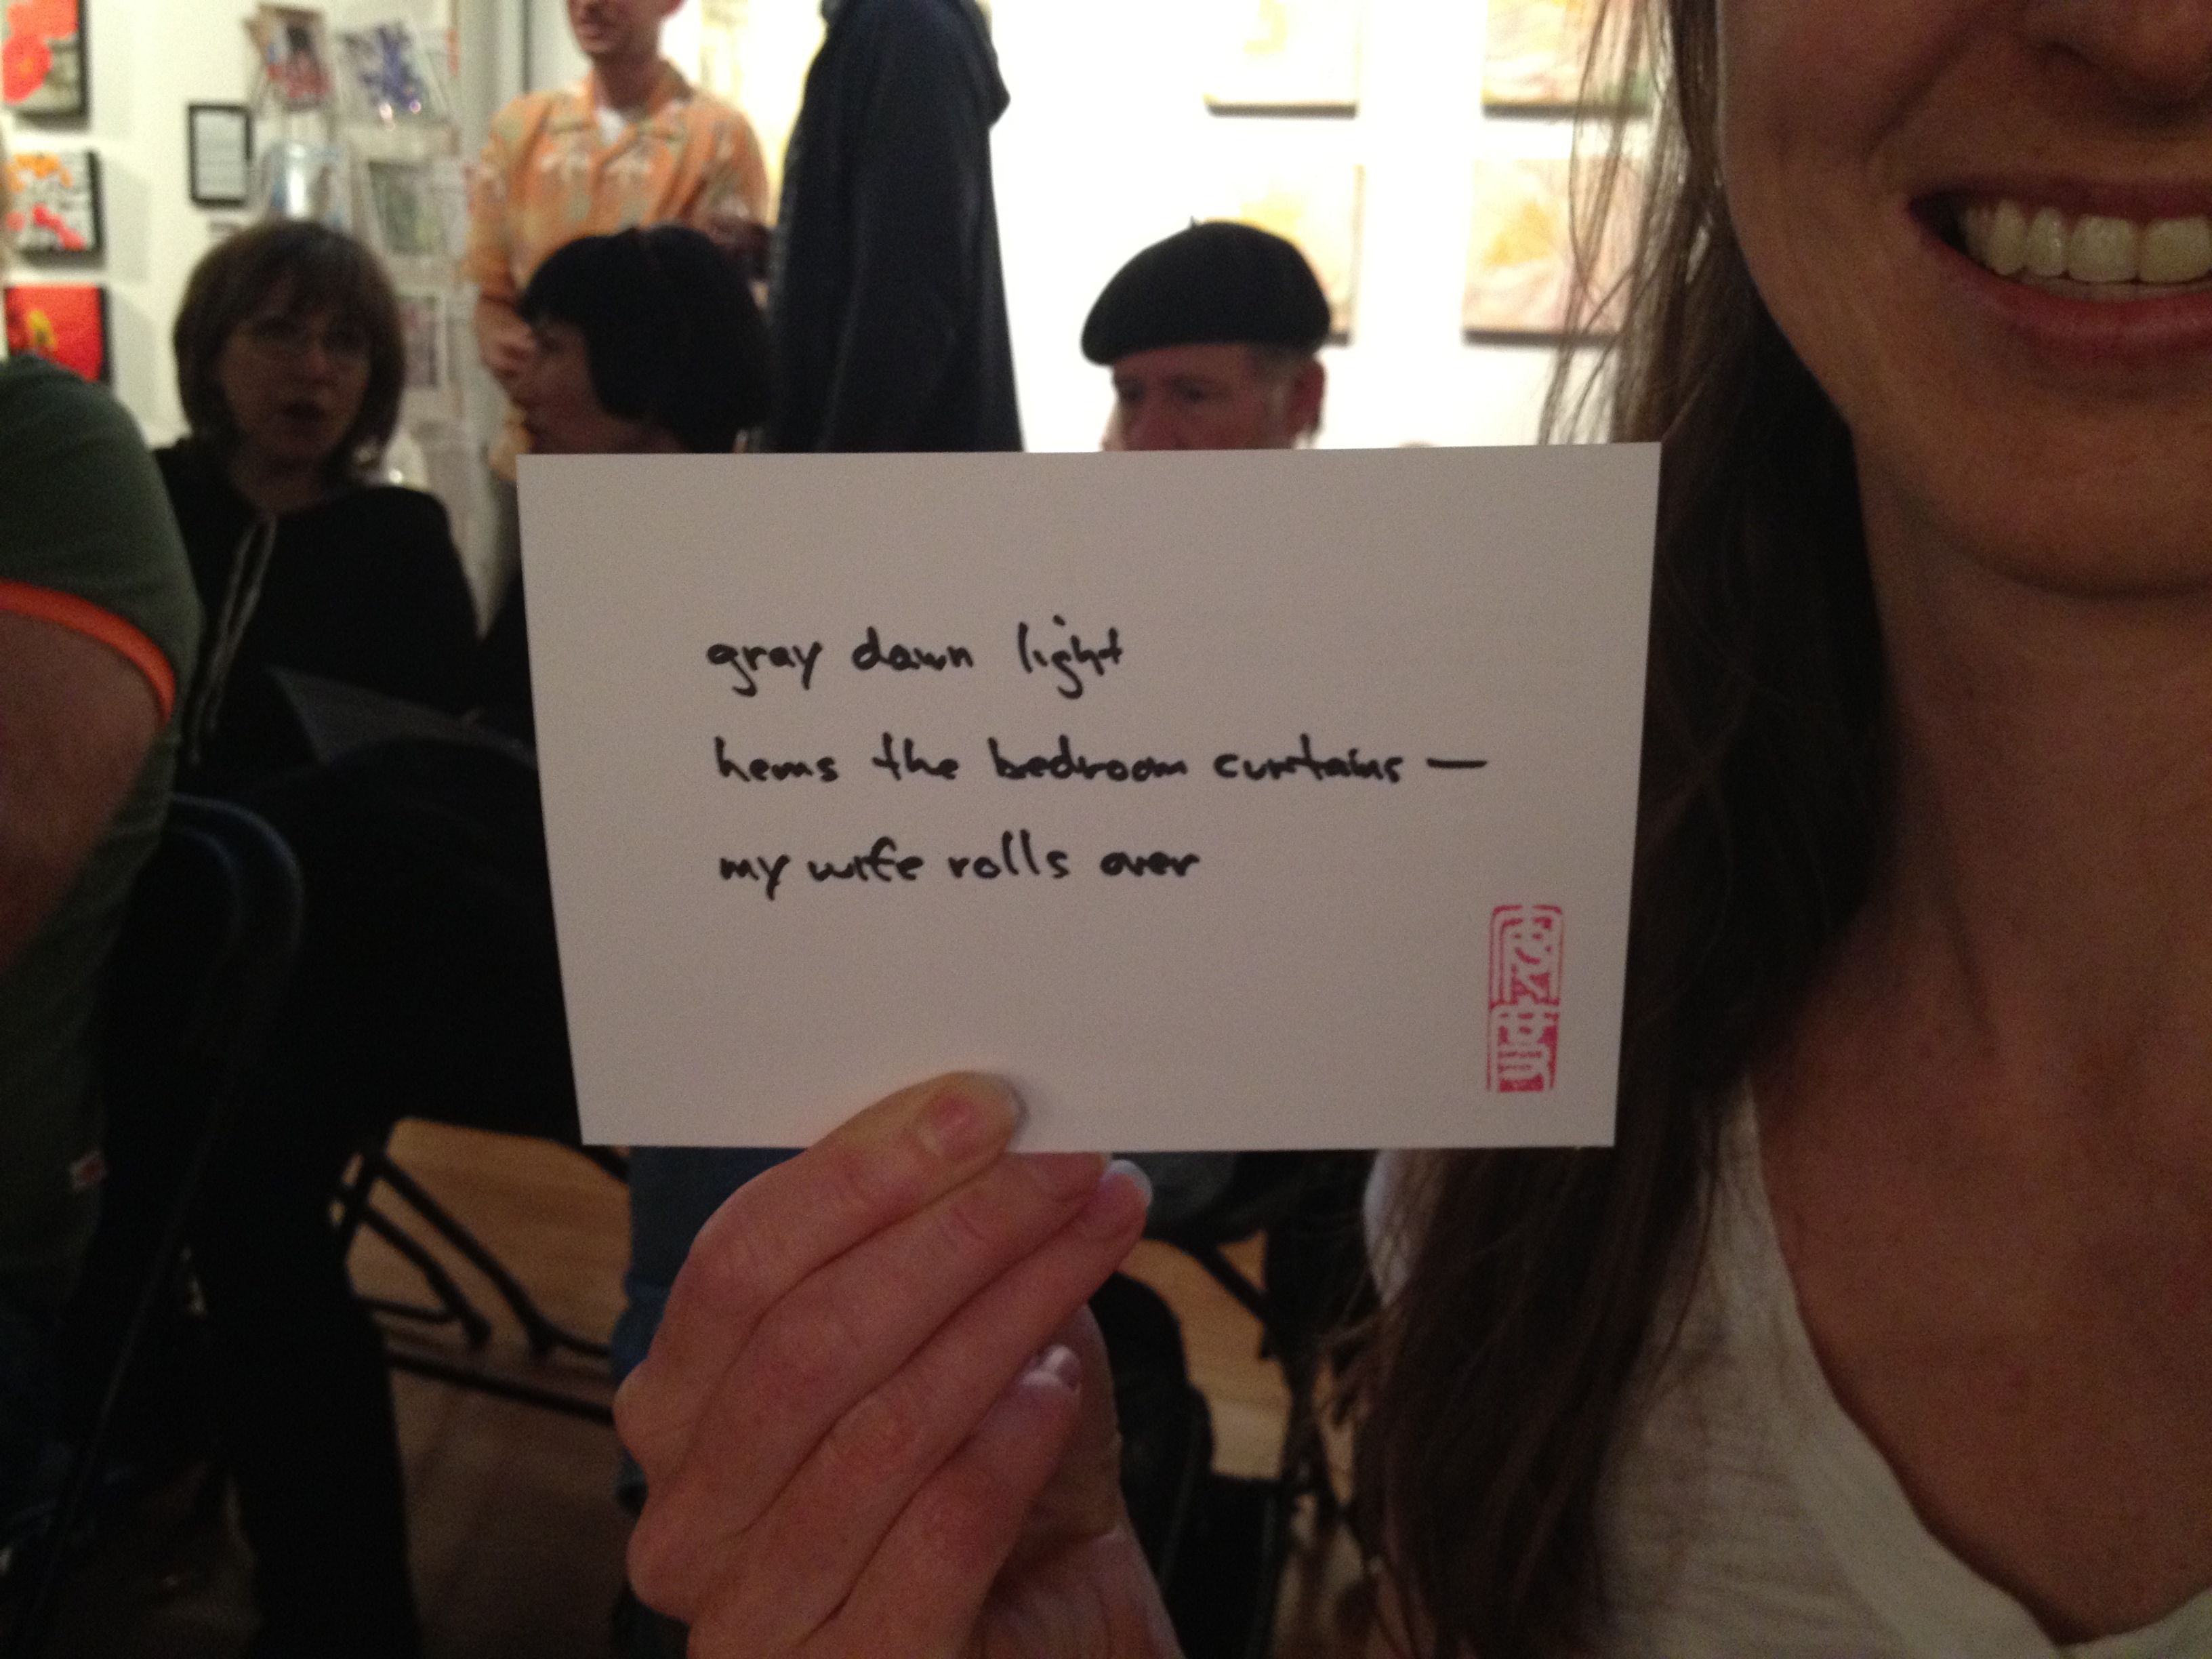 gray dawn light
hems the bedroom curtains —
my wife rolls over